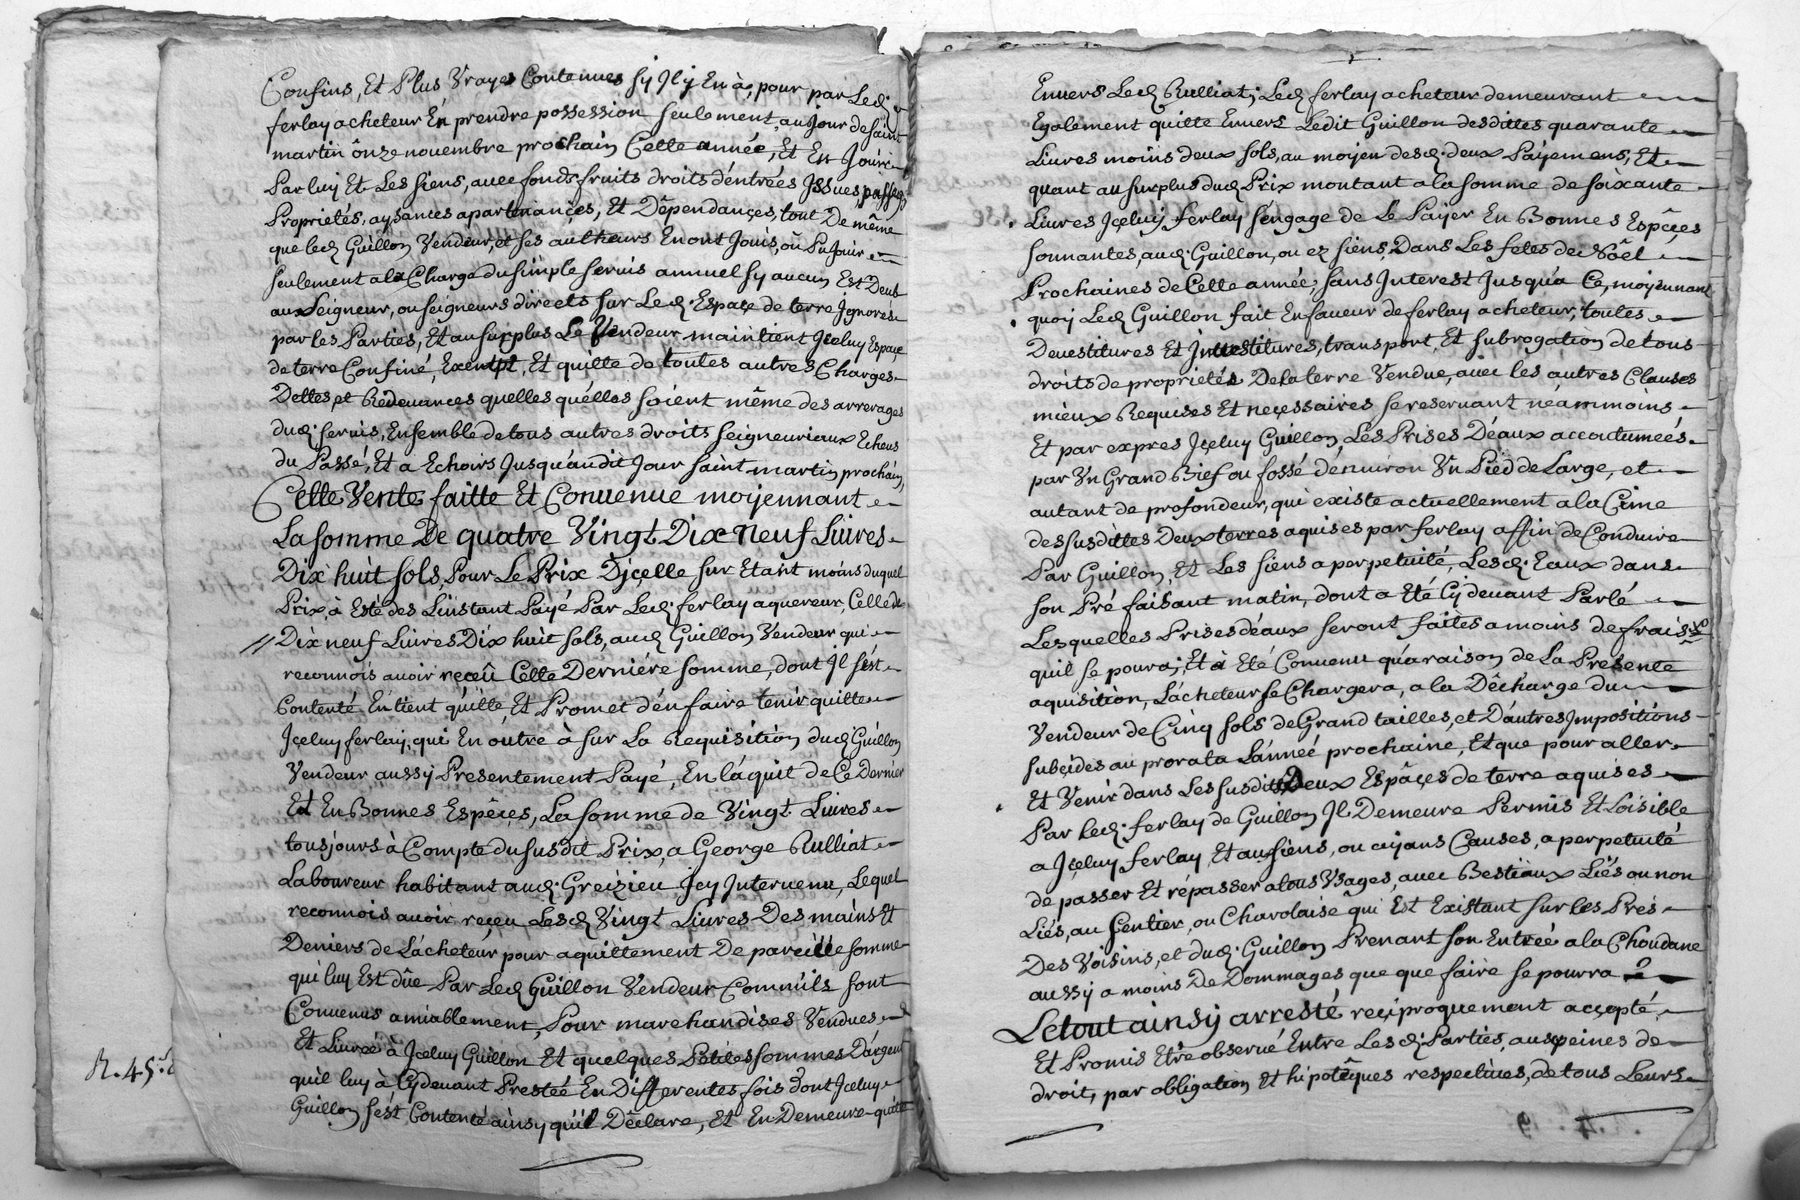 Confins, Et Plus Vrayes Contenues sy Jl y En à, pour par Led.
ferlay acheteur En prendre possession seulement, au Jour de saint
martin ônze novembre prochain Cette année, Et En Jouir
Par luy Et Les siens, avec fonds fruits droits d'éntrées Jssues, passages
Proprietés, aysances apartenançes, Et Dêpendançes, tout De même
que led. Guillon Vendeur, et ses autheurs En ont Joüis, où Pu Joüir
seulement a la Charge du simple servis annuel sy aucun Est Deub
aux seigneur, ou seigneurs directs sur Led. Espaçe de terre Jgnorés
par les Parties, Et au surplus Le Vendeur maintient Jceluy Espace
de terre Confiné, Exempt, Et quitte de toutes autres Charges
Dettes, et Redevances quelles quélles soient même des arrerages
dud. servis, Ensemble de tous autres droits seigneuriaux Echeus
du Passé, Et a Echoirs Jusqu'audit Jour saint martin prochain,
Cette Vente faitte Et Convenue moyennant
La somme De quatre Vingt Dix neuf Livres
Dix huit sols, Pour Le Prix D'jçelle sur Etant moins duquel
Prix, à Esté des L'instant Payé Par Led. ferlay aquereur, Celle de
// Dix neuf Livres Dix huit sols, aud. Guillon Vendeur qui
reconnois avoir reçeû Cette Derniére somme, dont Jl sést
Contenté En tient quitte, Et Promet d'én faire tenir quitte
Jçeluy ferlay; qui En outre à sur La Requisition dud. Guillon
Vendeur aussy Presentement Payé, En l'áquit de Ce Dernier
Et En Bonnes Espêçes, La somme de Vingt Livres
tousjours à Compte du susdit Prix, a George Rulliat
Laboureur habitant aud. Greizieu Jcy Jntervenu, Lequel
reconnois avoir reçeu Lesd. Vingt Livres Des mains Et
Deniers de L'ácheteur pour aquittement De pareille somme
qui luy Est dûe Par Led. Guillon Vendeur Comm'ils sont
Convenus amiablement, Pour marchandises Vendues,
Et Livrée à Jçeluy Guillon Et quelques Petites sommes D'árgent
quil luy à Cÿdevant Prestée En Differentes fois dont Jceluy
R. 45.
Guillon, s'ést Contenté ainsy qu'il Déclare, Et En Demeure quitte
Envers Led. Rulliat; Led. ferlay acheteur demeurant
Egalement quitte Envers Ledit Guillon desdittes quarante
Livres moins deux sols, au moyen desd. deux Payemens, Et
quant au surplus dud. Prix montant a la somme de soixante
Livres Jçeluy ferlay s'éngage de Le Payer En Bonnes Espêçes
sonnantes, aud. Guillon, ou ez siens, Dans Les fetes de Nôel
Prochaines de Cette année; sans Jnterest Jusqu'a Ce, moyennant
quoy Led. Guillon fait En faveur de ferlay acheteur, toutes
Devestitures Et Jnvestitures, transport, Et subrogation de tous
droits de proprietés De la terre Vendue, avec les autres Clauses
mieux Requises Et neçessaires se reservant néammoins
Et par expres Jçeluy Guillon, Les Prises D'éaux accoutumeés
par Vn Grand Bief ou fossé dénviron Vn Pied de Large, et
autant de profondeur, qui existe actuellement a la Cime
des susdittes Deux terres aquises par ferlay affin de Conduire
Par Guillon, Et Les siens a perpetuité, Lesd. Eaux dans
son Pré faisant matin, dont a Eté Cÿ devant Parlé
Lesquelles Prises déaux seront faites a moins de frais
quil se poura; Et à Eté Convenu qu'a raison de La Presente
aquisition, L'ácheteur se Chargera, a la Dêcharge du
Vendeur de Cinq sols de Grand tailles, et D'autres Jmpositions
subçides au prorata L'anneé prochaine, Et que pour aller
Et Venir dans Les susdits Deux Espâçes de terre aquises
Par led. ferlay de Guillon Jl Demeure Permis Et Loisible
a Jçeluy ferlay, Et aux siens, ou ayans Causes, a perpetuité
de passer Et répasser a tous Vsages, avec Bestiaux Liés ou non
Liés, au sentier, ou Charolaise qui Est Existant sur les Prés
Des Voisins, et dud. Guillon Prenant son Entreé a la Choudane
aussy a moins De Dommages que que faire se pourra
Le tout ainsy arresté reçiproquement acçepté,
Et Promis Etre observé Entre Lesd. Parties, aux peines de
droit, par obligation Et hipotêques respectives, de tous Leurs